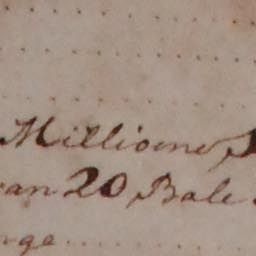 Millione
an 20 Bale
nge